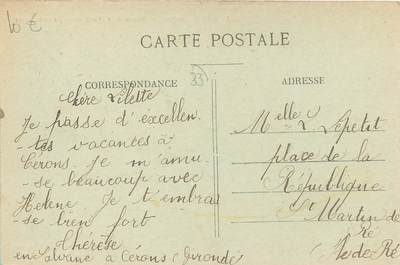 10 €
CARTE POSTALE
33
CORRESPONDANCE
ADRESSE
Chère Lilette
Je passe d'excellen.
-tes vacances à
Cérons. Je m'amu.
-se beaucoup avec
Hélène. Je t'embras
-se bien fort
Thérèse
en à Cérons (Gironde)
Melle L. Lepetit
place de la
République
St Martin de
Ré
(Ile de Ré